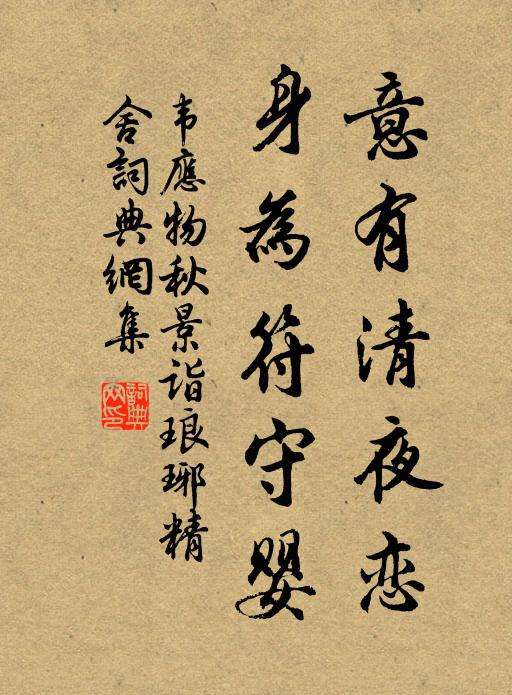 意有清夜恋
身為符守嬰
韦應物秋景诣琅琊精
舍詞典網集
詞典
网印